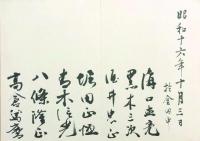 昭和十六年十月三日
於金田中
海口直亮
黒木三次
酒井忠正
堀田正恒
青木信光
八條隆正
高倉